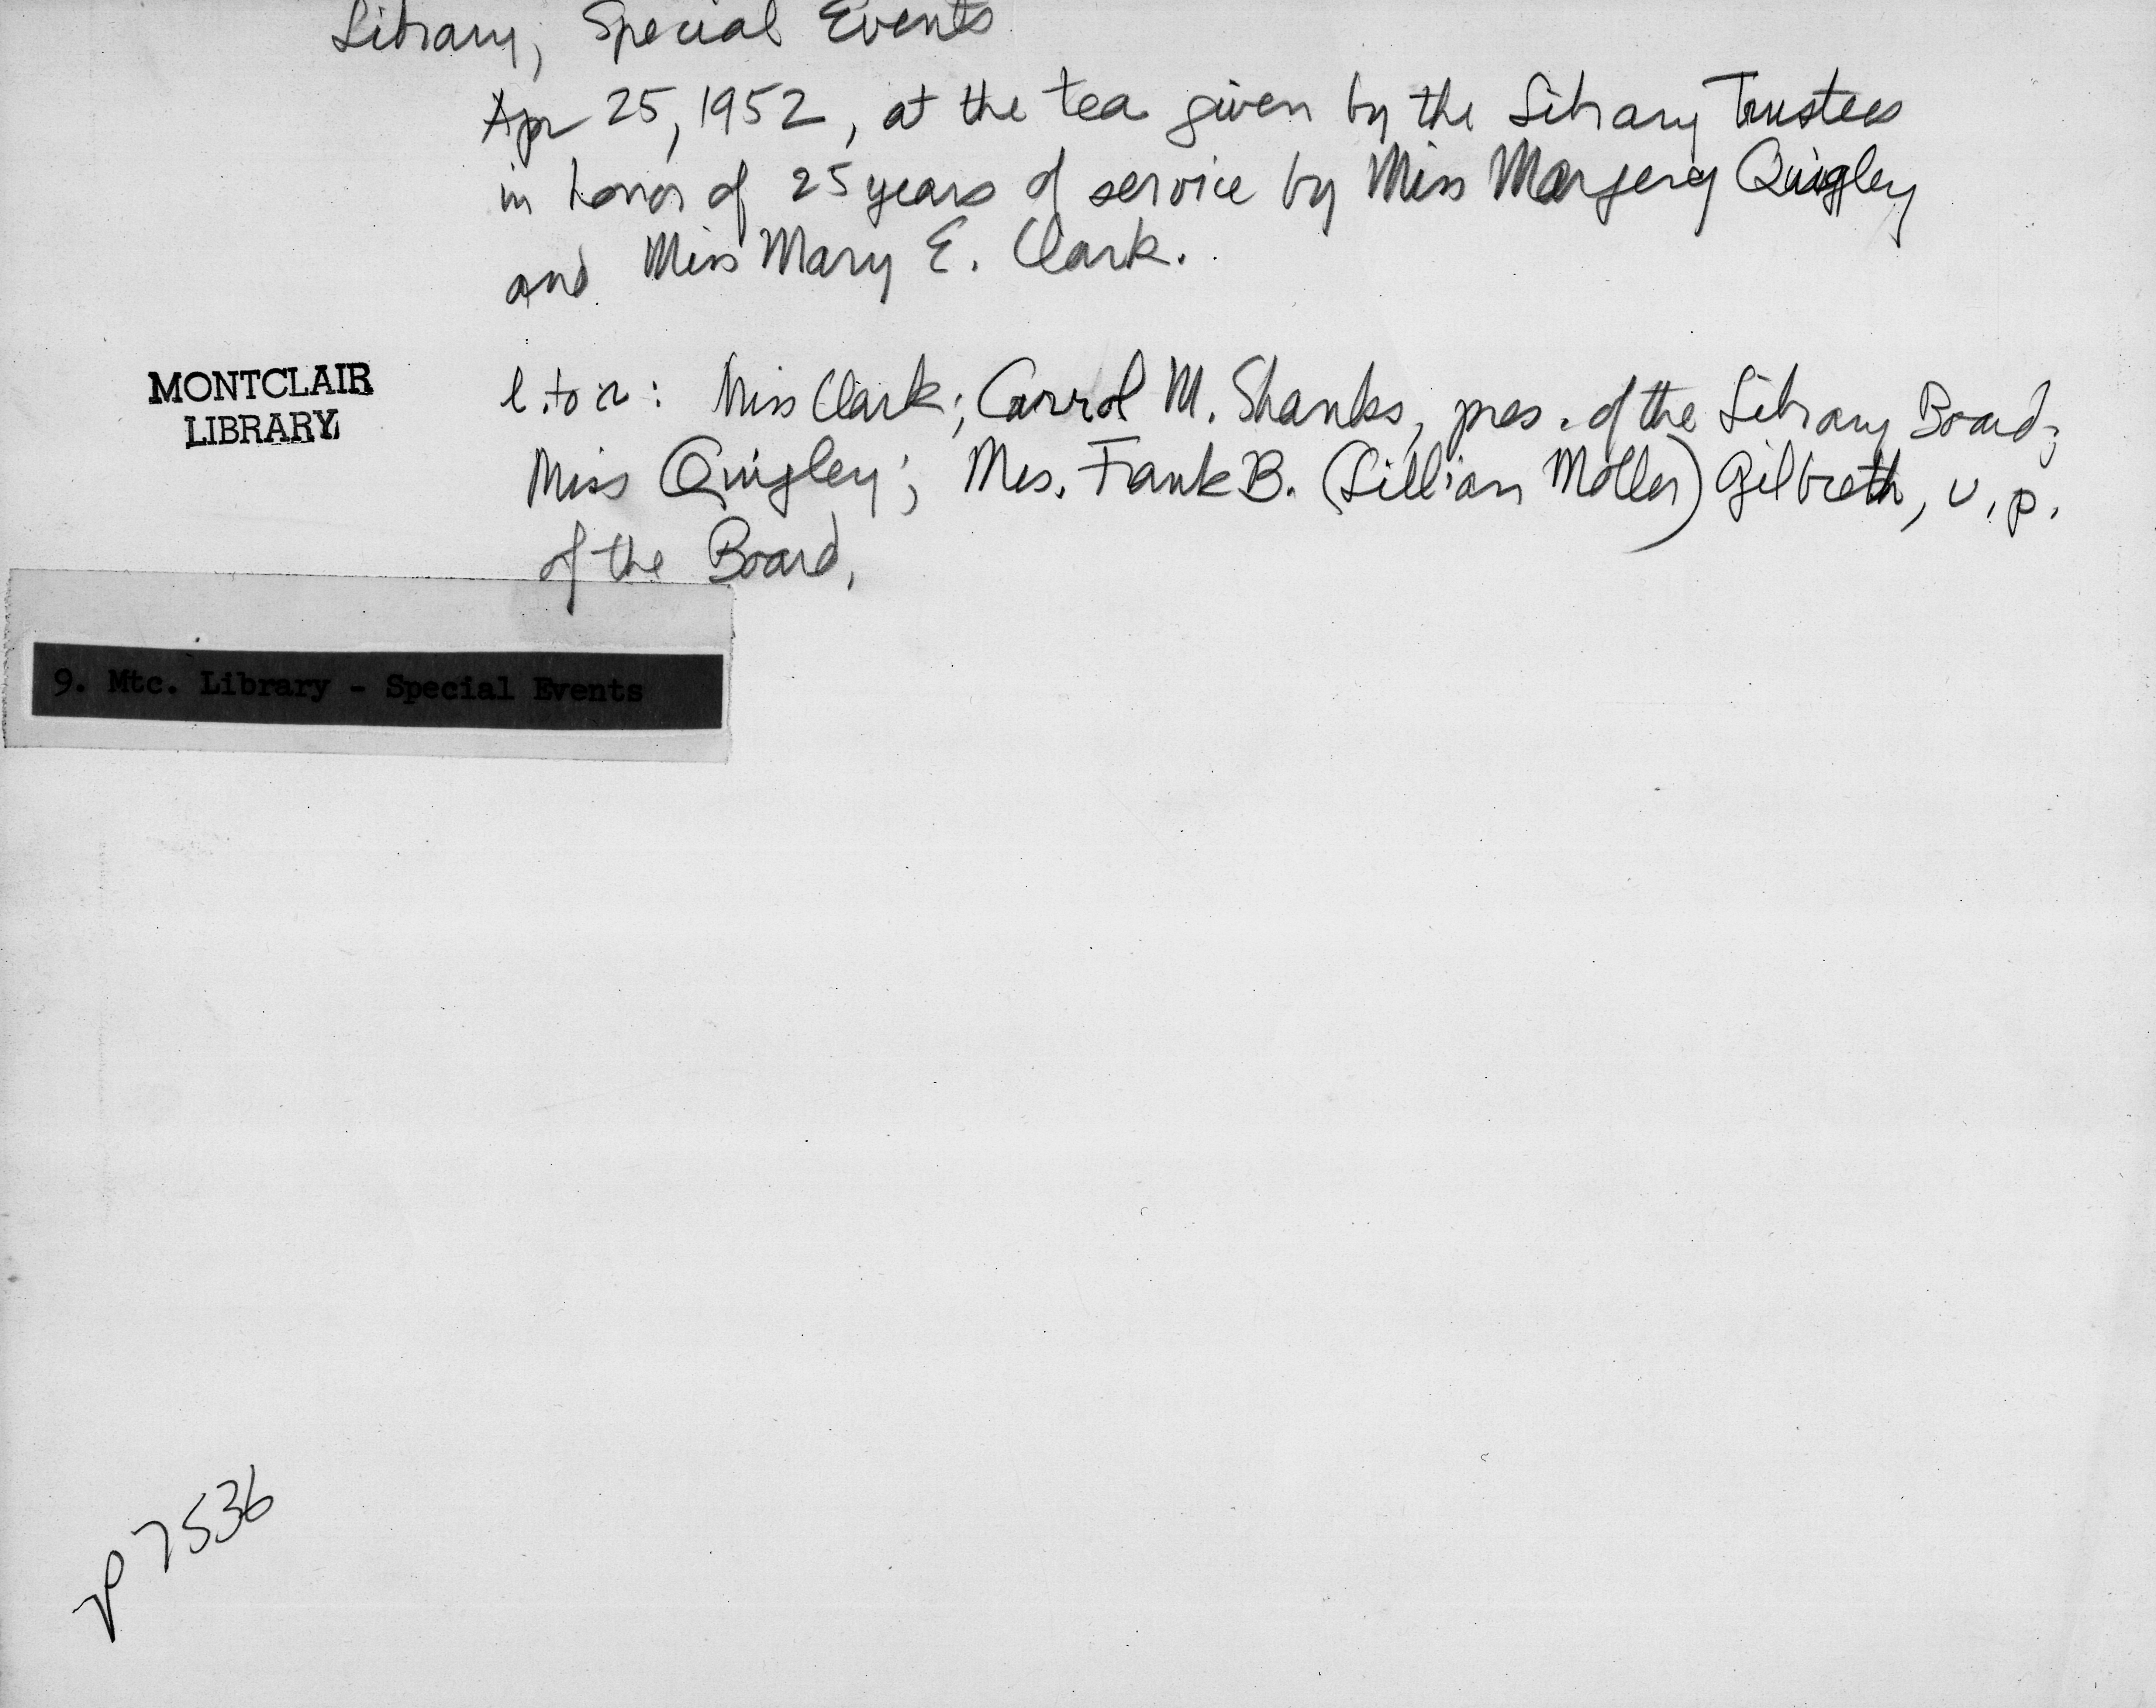 Library, Special Events
Apr 25, 1952, at the tea given by the Library Trustees
in honor of 25 years of service by Miss Margery Quigley
and Miss Mary E. Clark.
MONTCLAIR
LIBRARY
l. to r: Miss Clark; Carrol M. Shanks, pres. of the Library Board;
Miss Quigley; Mrs. Frank B. (Lillian Moller) Gilbreth, v.p.
of the Board.
9. Mtc. Library - Special Events
p 7536